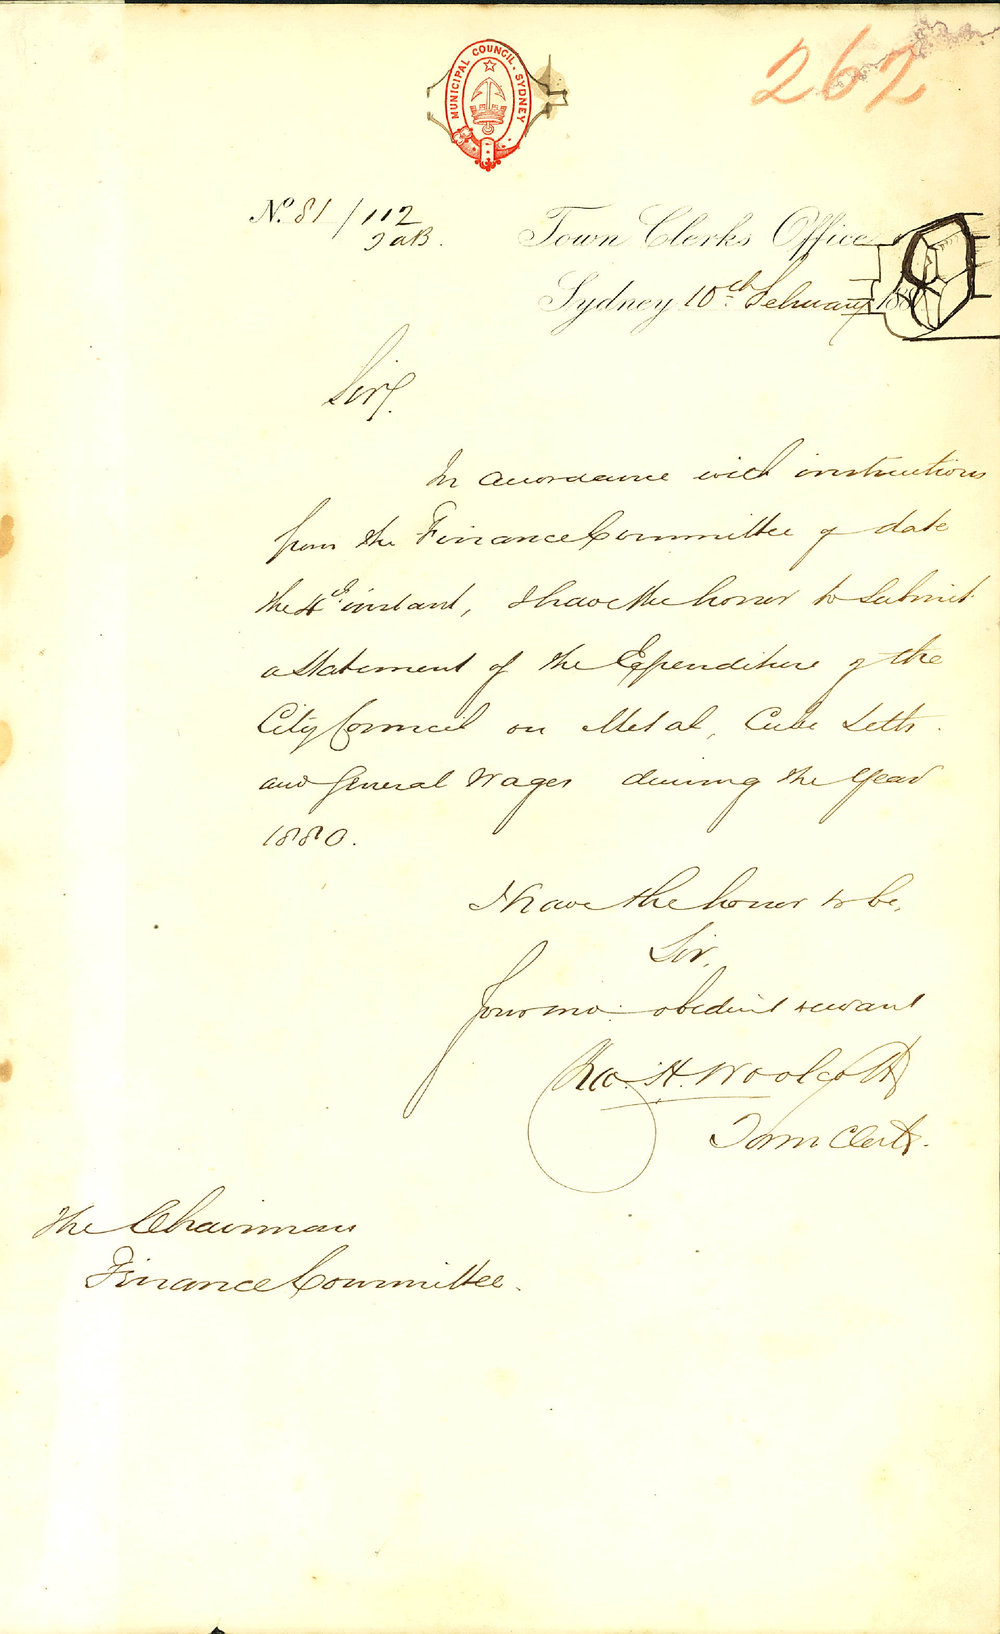 MUNICIPAL COUNCIL. SYDNEY
262
No. 81/112
Town Clerks Office
Sydney 10th February 188
Sir,
In accordance with instructions
from the Finance Committee of date
the 4th instant, I have the honor to submit
a Statement of the Expenditure of the
City Council on Metal, Cube Setts.
and General Wages during the Year
1880.
I have the honor to be,
Sir,
Your mo: obedient servant
Chs. H. Woolcott
Town Clerk.
The Chairman
Finance Committee.